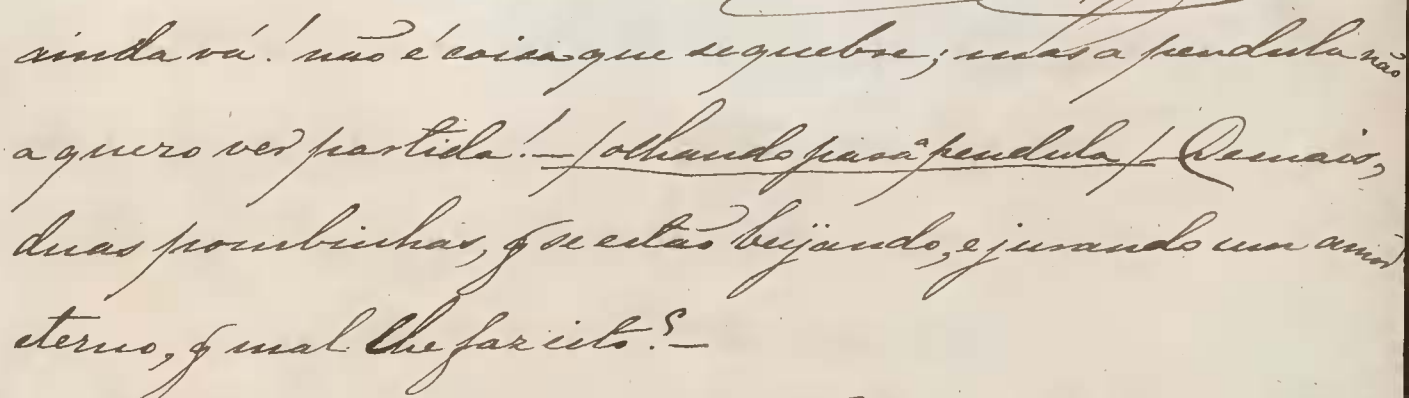 ainda vá! não é coisa que se quebre; mas a pendula não
a quero ver partida! — /olhando para a pendula/ — Demais,
duas pombinhas, q se estão beijando, e jurando um amor
eterno, q mal lhe faz isto? —